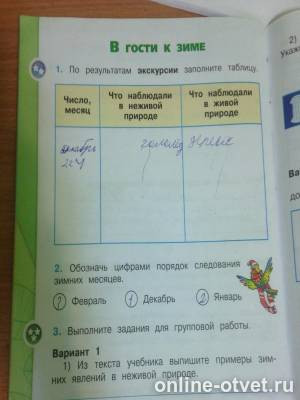 В ГОСТИ К ЗИМЕ
1. По результатам экскурсии заполните таблицу.
Число, месяц
Что наблюдали в неживой природе
Что наблюдали в живой природе
декабрь
гололёд
2. Обозначь цифрами порядок следования
зимних месяцев.
3 Февраль 1 Декабрь 2 Январь
3. Выполните задания для групповой работы.
Вариант 1
1) Из текста учебника выпишите примеры зим-
них явлений в неживой природе.
2)
Ука
Ва
до
online-otvet.ru